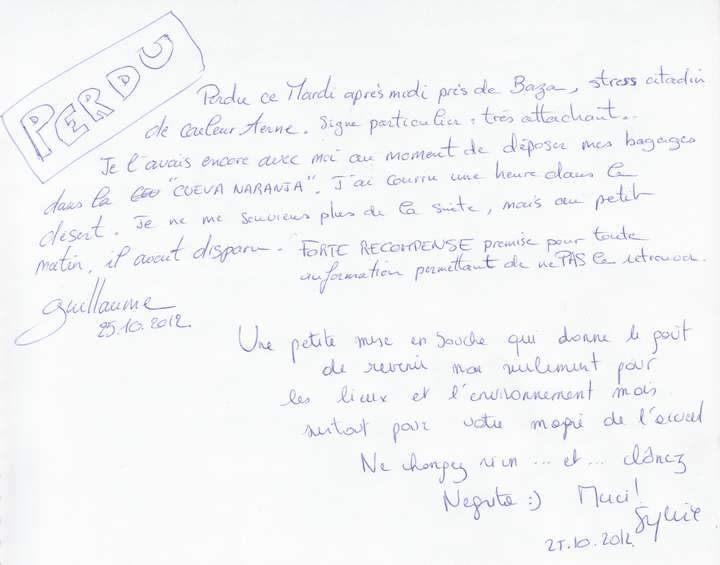 PERDU
Perdu ce Mardi après midi près de Baza, stress citadin
de couleur terne. Signe particulier : très attachant..
Je l'avais encore avec moi au moment de déposer mes bagages
dans la "CUEVA NARANJA". J'ai couru une heure dans le
désert. Je ne me souviens plus de la suite, mais au petit
matin, il avait disparu. FORTE RECOMPENSE promise pour toute
information permettant de ne PAS le retrouver.
Guillaume
25.10.2012
Une petite mise en bouche qui donne le goût
de revenir non seulement pour
les lieux et l'environnement mais
surtout pour votre magie de l'accueil
Ne changez rien ... et ... clônez
Negrita :) Merci!
Sylvie
25.10.2012